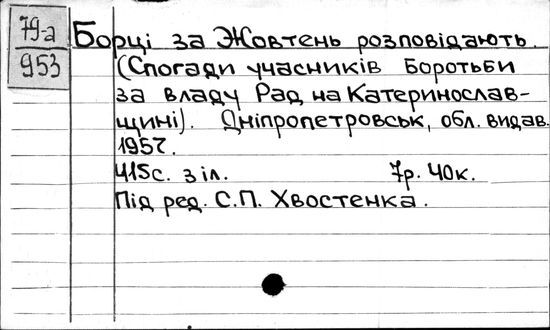 79-а
953
Борці за Жовтень розповідають.
(Спогади учасників боротьби
за владу Рад на Катеринослав-
щині). Дніпропетровськ, обл. видав.
1957.
415с. з іл. 7р. 40к.
Під ред. С.П. Хвостенка.